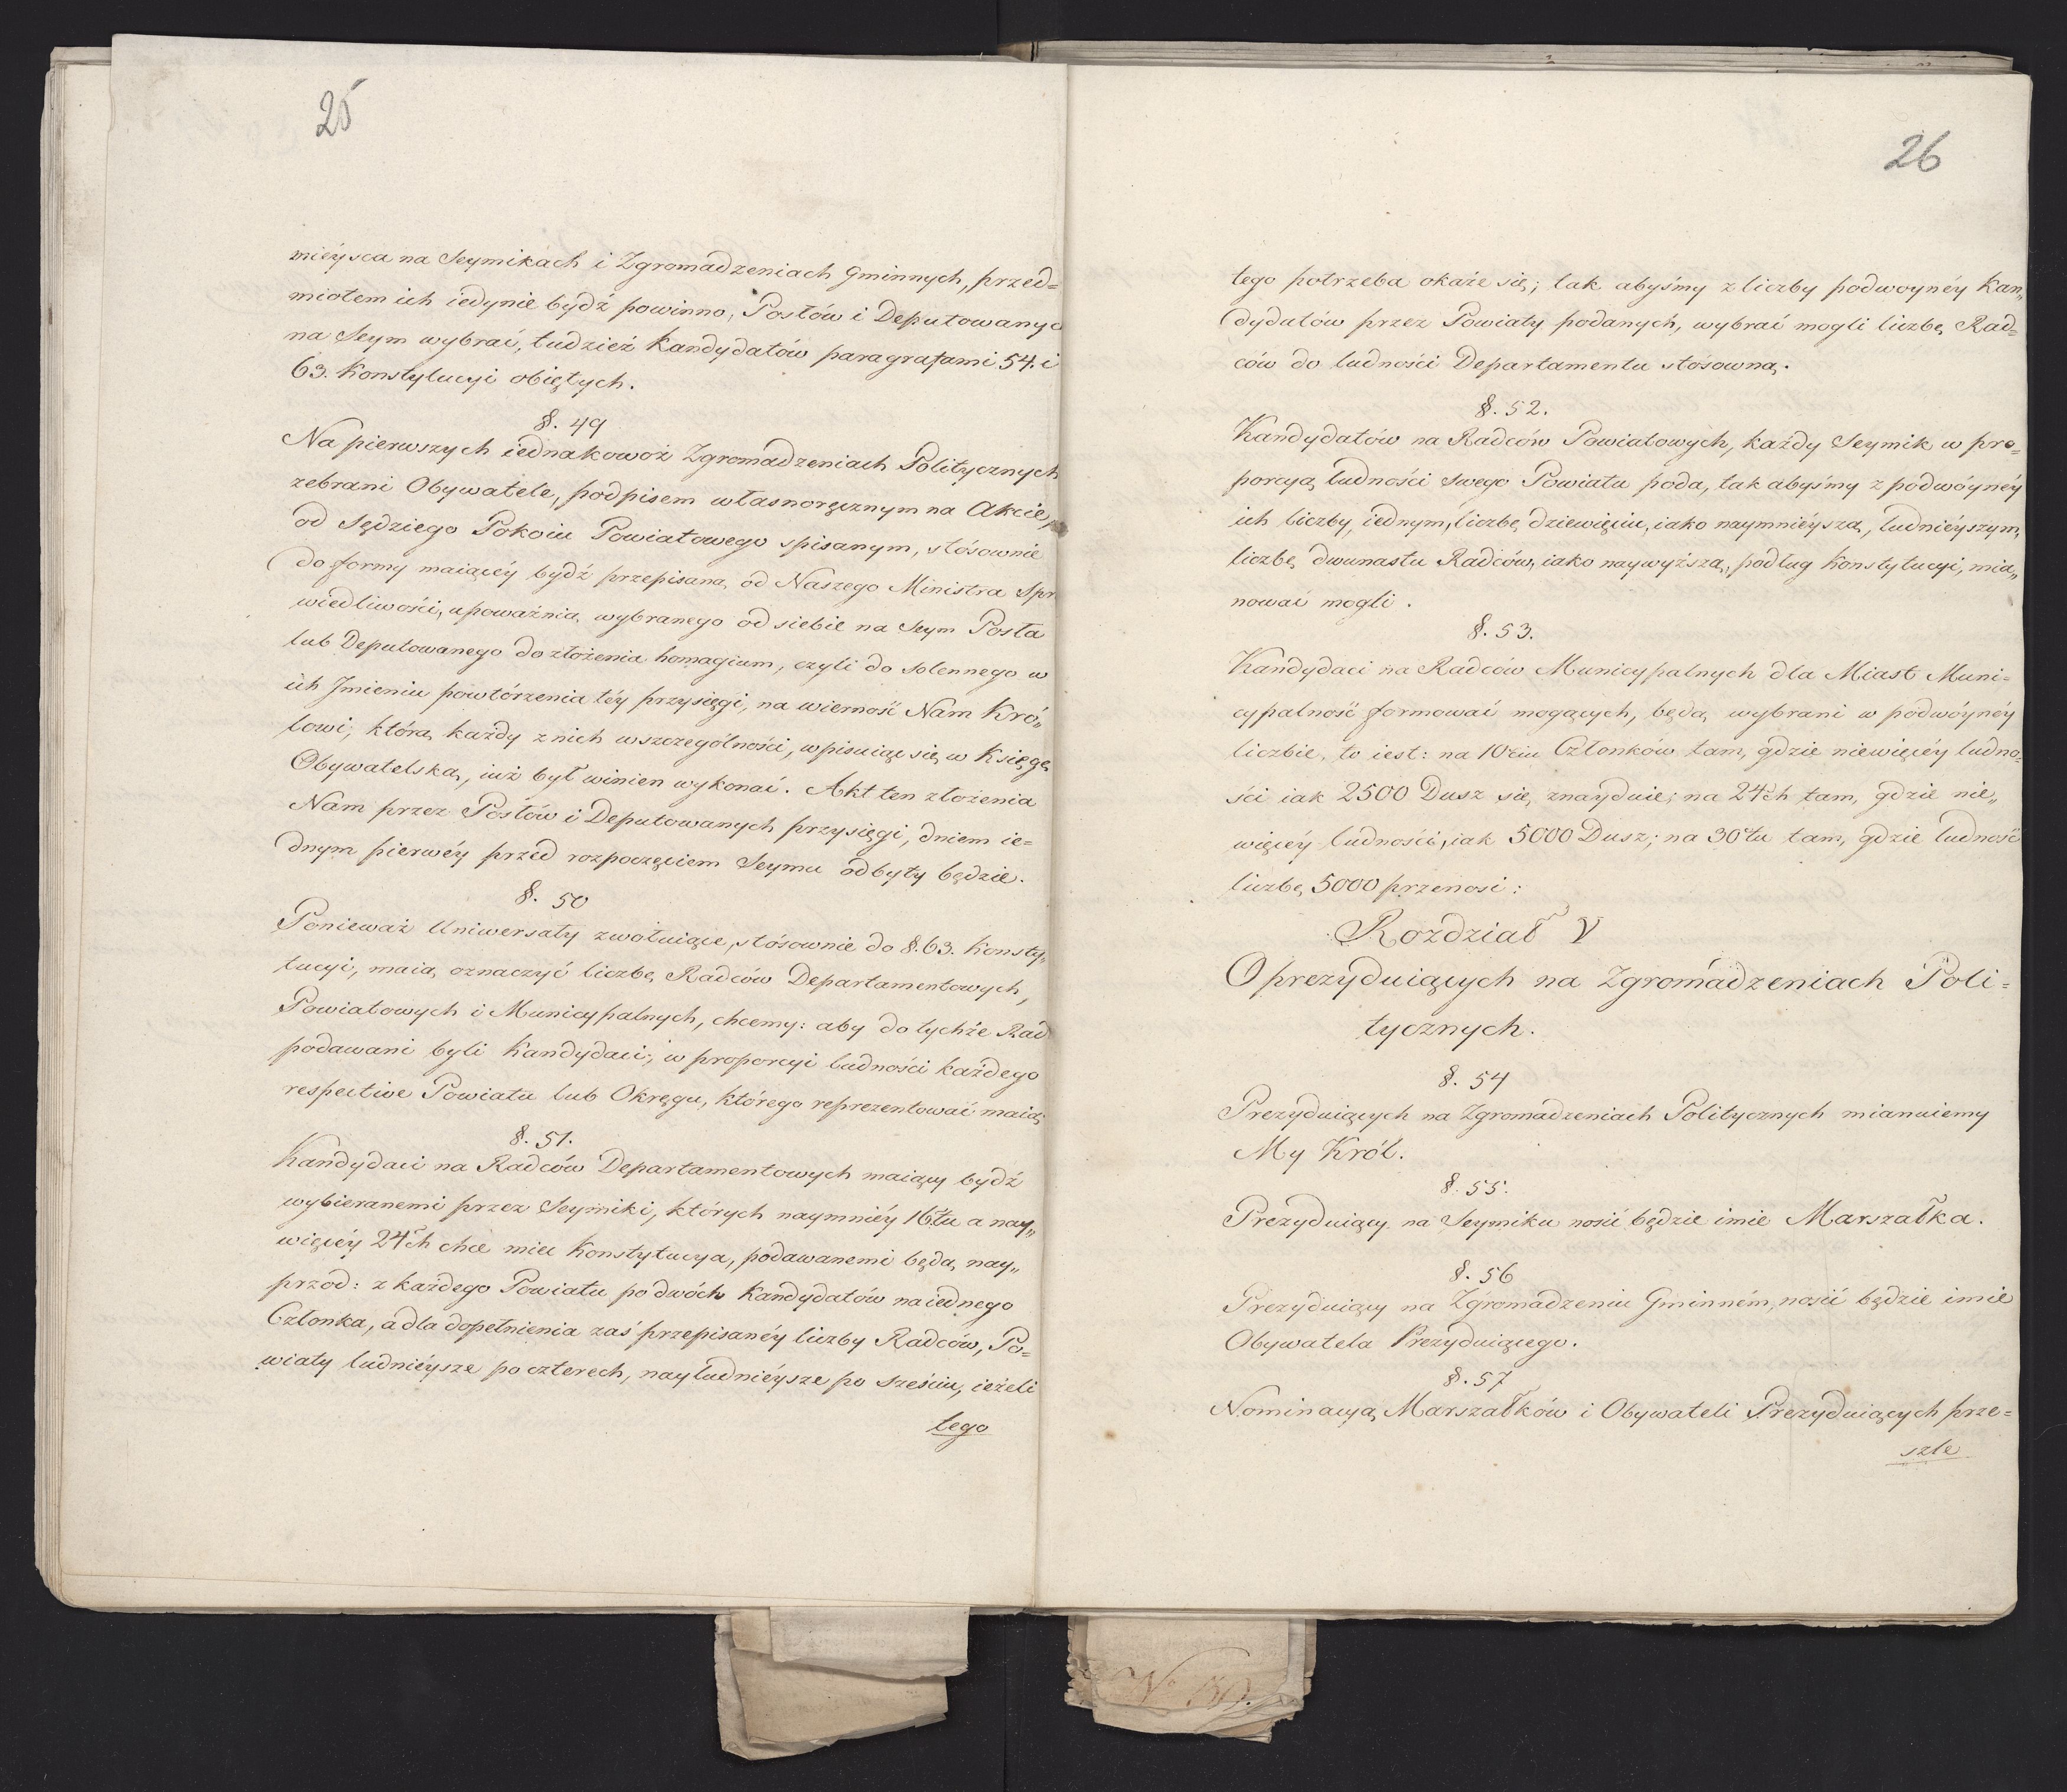 25
miéysca na Seymikach i Zgromadzeniach Gminnych, przed=
miotem ich iedynie bydź powinno, Posłów i Deputowanyc
na Seym wybrać, tudzież Kandydatów paragrafami 54. i
63. Konstytucyi obiętych.
§. 49
Na pierwszych iednakowoż Zgromadzeniach Politycznych
zebrani Obywatele, podpisem własnoręcznym na Akcie,
od Sędziego Pokoiu Powiatowego spisanym, stósownie
do formy maiącéy bydź przepisaną od Naszego Ministra Spr
wiedliwości, upoważnią wybranego od siebie na Seym Posła
lub Deputowanego do złożenia homagium, czyli do solennego w
ich Jmieniu powtórzenia téy przysięgi, na wierność Nam Kró„
lowi, którą każdy z nich w szczególności, wpisuiąc się w Księgę
Obywatelską, iuż był winien wykonać. Akt ten złożenia
Nam przez Posłów i Deputowanych przysięgi, dniem ie=
dnym pierwéy przed rozpoczęciem Seymu odbyty będzie.
§. 50
Ponieważ Uniwersały zwołuiące, stósownie do §. 63. Konsty„
tucyi, maią oznaczyć liczbę Radców Departamentowych,
Powiatowych i Municypalnych, chcemy: aby do tychże Rad
podawani byli Kandydaci, w proporcyi ludności każdego
respective Powiatu lub Okręgu, którego reprezentować maią
§. 51.
Kandydaci na Radców Departamentowych maiący bydź
wybieranemi przez Seymiki, których naymniéy 16tu a nay„
więcéy 24ch chce mieć Konstytucya, podawanemi będą nay„
przód: z każdego Powiatu po dwóch Kandydatów na iednego
Członka, a dla dopełnienia zaś przepisanéy liczby Radców, Po=
wiaty ludniéysze po czterech, nayludniéysze po sześciu, ieżeli
tego
26
tego potrzeba okaże się; tak abyśmy z liczby podwoynéy Kan„
dydatów przez Powiaty podanych, wybrać mogli liczbę Rad=
ców do ludności Departamentu stósowną.
§. 52.
Kandydatów na Radców Powiatowych, każdy Seymik w pro=
porcyą ludności swego Powiatu poda, tak abyśmy z podwóynéy
ich liczby, iednym, liczbę dziewięciu, iako naymniéyszą, ludniéyszym,
liczbę dwunastu Radców, iako naywyższą, podług Konstytucyi, mia„
nować mogli.
§. 53.
Kandydaci na Radców Municypalnych dla Miast Muni=
cypalność formować mogących, będą wybrani w podwóynéy
liczbie, to iest: na 10ciu Członków tam, gdzie niewięcéy ludno=
ści iak 2500 Dusz się znayduie; na 24ch tam, gdzie nie„
więcéy ludności, iak 5000 Dusz; na 30tu tam, gdzie ludność
liczbę 5000 przenosi:
Rozdział V
O prezyduiących na Zgromadzeniach Poli=
tycznych.
§. 54
Prezyduiących na Zgromadzeniach Politycznych mianuiemy
My Król.
§. 55.
Prezyduiący na Seymiku nosić będzie imie Marszałka.
§. 56
Prezyduiący na Zgromadzeniu Gminném, nosić będzie imie
Obywatela Prezyduiącego.
§. 57
Nominacyą Marszałków i Obywateli Prezyduiących prze=
szle